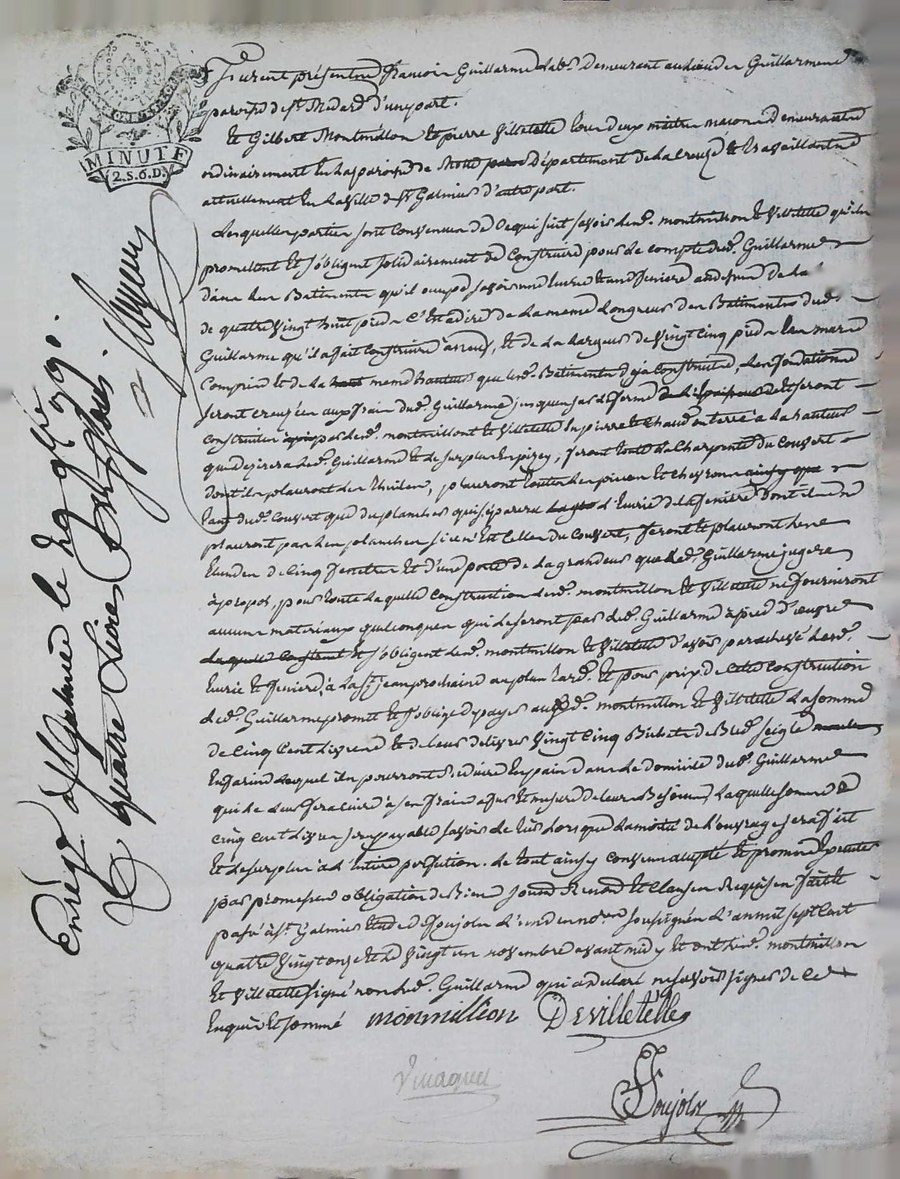 MINUTE
2.S.6.D.
Furent présents françois Guillarme lab.r demeurant au lieu des Guillarmens
paroisse de St Medard d'une part.
Et Gilbert Montmillon et pierre Villetelle tous deux maitres macons demeurants
ordinairement en la paroisse de département de la Creuse et travaillants
actuellement en la Ville de St Galmier d'autre part.
Lesquelles parties sont convenues de ce qui suit savoir lesd. montmillon et Villetelle qu'ils
promettent et s'obligent solidairement de construire pour le compte dud. Guillarme
dans les Batiments qu'il occupe savoir une Ecurie et une feniere au dessus de la
de quatre vingt huit pieds c'est a dire de la meme longueur des Batiments dud.
Guillarme qu'il a fait construire à neuf, et de la largeur de vingt cinq pieds les murs
compris et de la meme hauteur que lesd. Batiments deja construits, les fondations
seront creusées aux frais dud. Guillarme jusques au ferme et seront
construites par lesd. montmillont et Villetelle en pierre et chaud en terre a la hauteur
que desirera led. Guillarme et le surplus en pizey, feront toute la charpente du couvert
dont ils placeront les thuiles, placeront toutes les pieces et cheyrons
tant dud. couvert que du plancher qui séparera l'Ecurie de la feniere dont ils ne
placeront pas les planches si ce n'est celles du couvert, feront et placeront les
de cinq fenetres et d'une porte de la grandeur que led. Guillarme jugera
àpropos, pour toute laquelle construction lesd. montmillon et Villetelle ne fourniront
aucuns materiaux quelconques qui le seront par led. Guillarme à pied d'œuvre
s'obligent lesd. montmillon et Villetelle d'avoir parachevé lesd.
Ecurie et feniere, à la St jean prochaine au plus tard. Et pour prix de cette construction
led. Guillarme promet et s'oblige de payer auxd. montmillon et Villetelle la somme
de cinq cent livres et de leur delivrer Vingt Cinq Bichets de Bled seigle
en farine lequel ils pourront reduire en pain dans le domicile dud. Guillarme
qui le leur fera cuire à ses frais a fur et mesure de leurs Besoins, laquelle somme de
cinq cent livres sera payable savoir le tiers lorsque la moitié de l'ouvrage sera fait
et le surplus à l'entiere perfection. le tout ainsy convenu accepté et promis executer
par promesses obligation de Biens soumd. Renond. et clauses Requises fait et
passé à St Galmier Etude de Poujols l'un des nores soussignés l'an mil sept cent
quatre vingt onze et le Vingt un novembre avant midy et ont lesd. montmillon
et Villetelle signé non led. Guillarme qui a declaré ne savoir signer de ce
Enquis et sommé monmillion Devilletelle
Poujols
Enreg. a St Galmier le 29 9bre 1791.
R quatre Livres